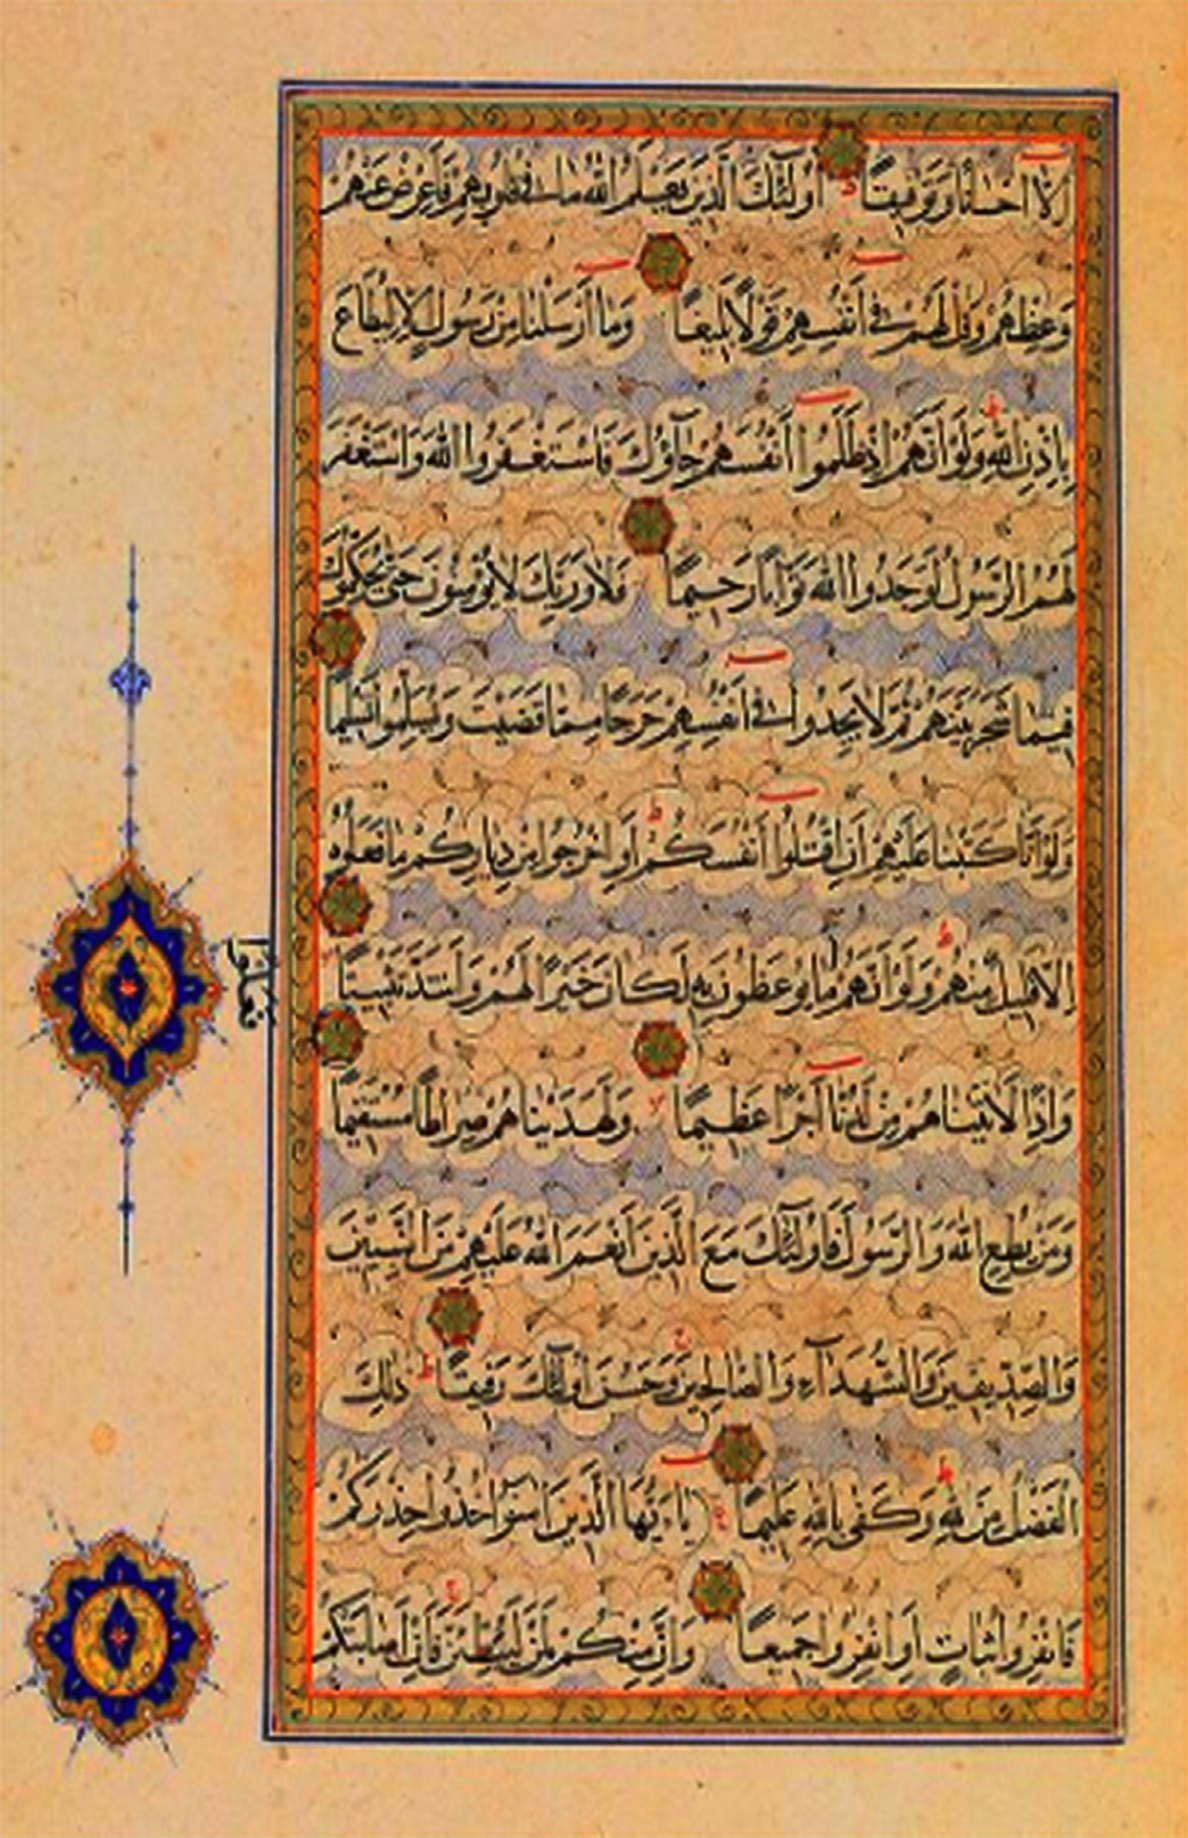 إلا احسانا وتوفيقا أولئك الذين يعلم الله ما في قلوبهم فأعرض عنهم
وعظهم وقل لهم في أنفسهم قولا بليغا وما أرسلنا من رسول إلا ليطاع
بإذن الله ولو أنهم إذ ظلموا أنفسهم جاؤك فاستغفروا الله واستغفر
لهم الرسول لوجدوا الله توابا رحيما فلا وربك لا يؤمنون حتى يحكموك
فيما شجر بينهم ثم لا يجدوا في أنفسهم حرجا مما قضيت ويسلموا تسليما
ولو أنا كتبنا عليهم أن اقتلوا أنفسكم أو اخرجوا من دياركم ما فعلوه
إلا قليل منهم ولو أنهم ما يوعظون به لكان خيرا لهم ولشد تثبيتا
وإذا لآتيناهم من لدنا أجرا عظيما ولهديناهم صراطا مستقيما
ومن يطع الله والرسول فأولئك مع الذين أنعم الله عليهم من النبيين
والصديقين والشهداء والصالحين وحسن أولئك رفيقا ذلك
الفضل من الله وكفى بالله عليما ياءيها الذين امنوا خذوا حذركم
فانفروا ثبات أو انفروا جميعا وإن منكم لمن ليبطئن فإن أصابتكم